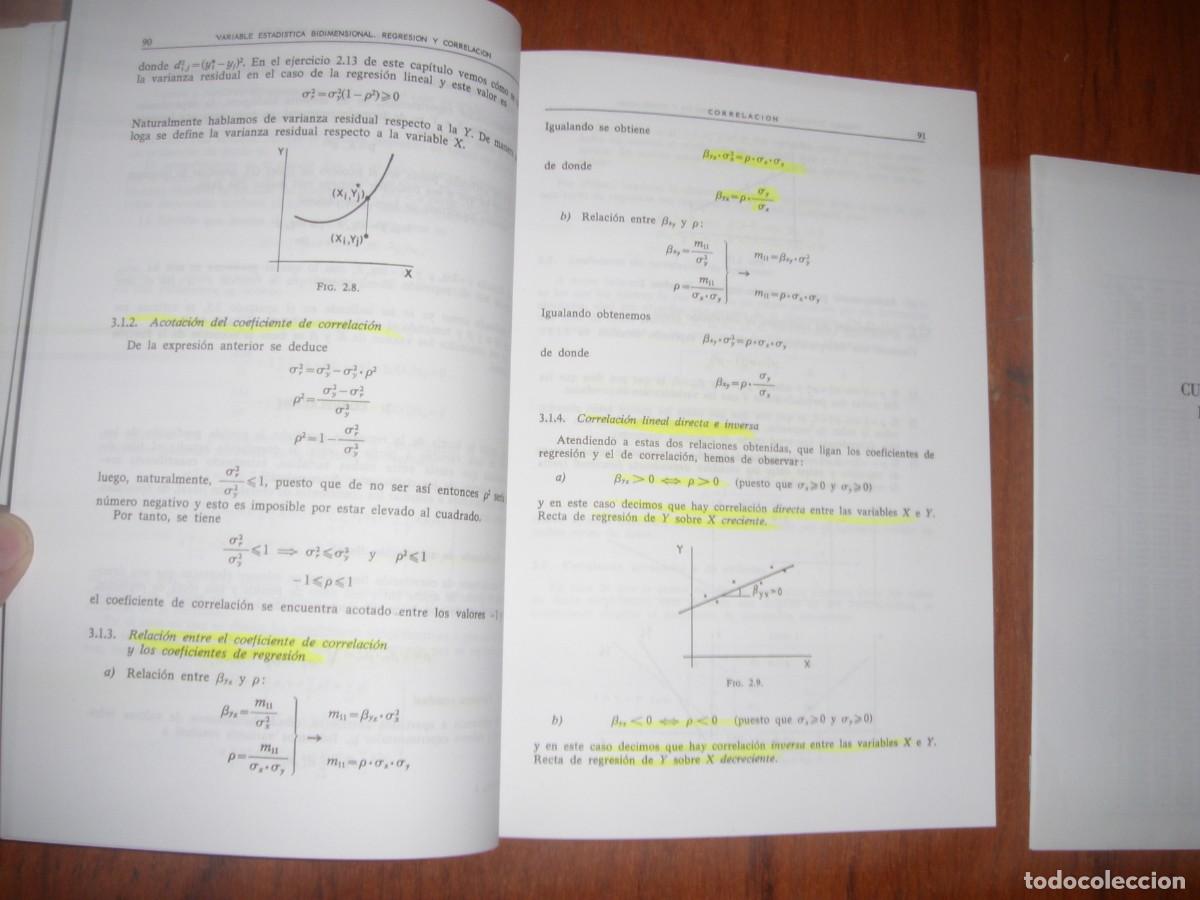 90 VARIABLE ESTADISTICA BIDIMENSIONAL. REGRESION Y CORRELACION
donde d²ᵢ,ⱼ=(y*ⱼ−yⱼ)². En el ejercicio 2.13 de este capítulo vemos cómo
la varianza residual en el caso de la regresión lineal y este valor es
σ²ᵣ=σ²ᵧ(1−ρ²)⩾0
Naturalmente hablamos de varianza residual respecto a la Y. De manera
loga se define la varianza residual respecto a la variable X.
Y
(Xᵢ,Y*ⱼ)
(Xᵢ,Yⱼ)
X
FIG. 2.8.
3.1.2. Acotación del coeficiente de correlación
De la expresión anterior se deduce
σ²ᵣ=σ²ᵧ−σ²ᵧ·ρ²
ρ²=(σ²ᵧ−σ²ᵣ)/σ²ᵧ
ρ²=1−σ²ᵣ/σ²ᵧ
luego, naturalmente, σ²ᵣ/σ²ᵧ⩽1, puesto que de no ser así entonces ρ² será
número negativo y esto es imposible por estar elevado al cuadrado.
Por tanto, se tiene
σ²ᵣ/σ²ᵧ⩽1 ⟹ σ²ᵣ⩽σ²ᵧ y ρ²⩽1
−1⩽ρ⩽1
el coeficiente de correlación se encuentra acotado entre los valores −1
3.1.3. Relación entre el coeficiente de correlación
y los coeficientes de regresión
a) Relación entre βᵧₓ y ρ:
βᵧₓ=m₁₁/σ²ₓ
m₁₁=βᵧₓ·σ²ₓ
→
ρ=m₁₁/(σₓ·σᵧ)
m₁₁=ρ·σₓ·σᵧ
CORRELACION 91
Igualando se obtiene
βᵧₓ·σ²ₓ=ρ·σₓ·σᵧ
de donde
βᵧₓ=ρ·σᵧ/σₓ
b) Relación entre βₓᵧ y ρ:
βₓᵧ=m₁₁/σ²ᵧ
m₁₁=βₓᵧ·σ²ᵧ
→
ρ=m₁₁/(σₓ·σᵧ)
m₁₁=ρ·σₓ·σᵧ
Igualando obtenemos
βₓᵧ·σ²ᵧ=ρ·σₓ·σᵧ
de donde
βₓᵧ=ρ·σᵧ/σₓ
3.1.4. Correlación lineal directa e inversa
Atendiendo a estas dos relaciones obtenidas, que ligan los coeficientes de
regresión y el de correlación, hemos de observar:
a) βᵧₓ>0 ⟺ ρ>0 (puesto que σₓ⩾0 y σᵧ⩾0)
y en este caso decimos que hay correlación directa entre las variables X e Y.
Recta de regresión de Y sobre X creciente.
Y
βᵧₓ>0
X
FIG. 2.9.
b) βᵧₓ<0 ⟺ ρ<0 (puesto que σₓ⩾0 y σᵧ⩾0)
y en este caso decimos que hay correlación inversa entre las variables X e Y.
Recta de regresión de Y sobre X decreciente.
CU
todocoleccion